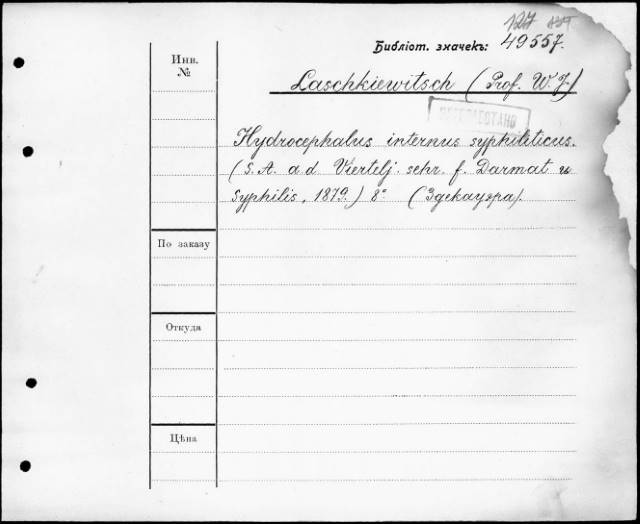 127
Библіот. значекъ: 49557.
Инв.
№
Laschkiewitsch (Prof. W. J.)
Hydrocephalus internus syphiliticus.
(S. A. a d. Viertelj. sehr. f. Darmat u
Syphilis, 1879.) 8° (Эдекауэра).
По заказу
Откуда
Цѣна